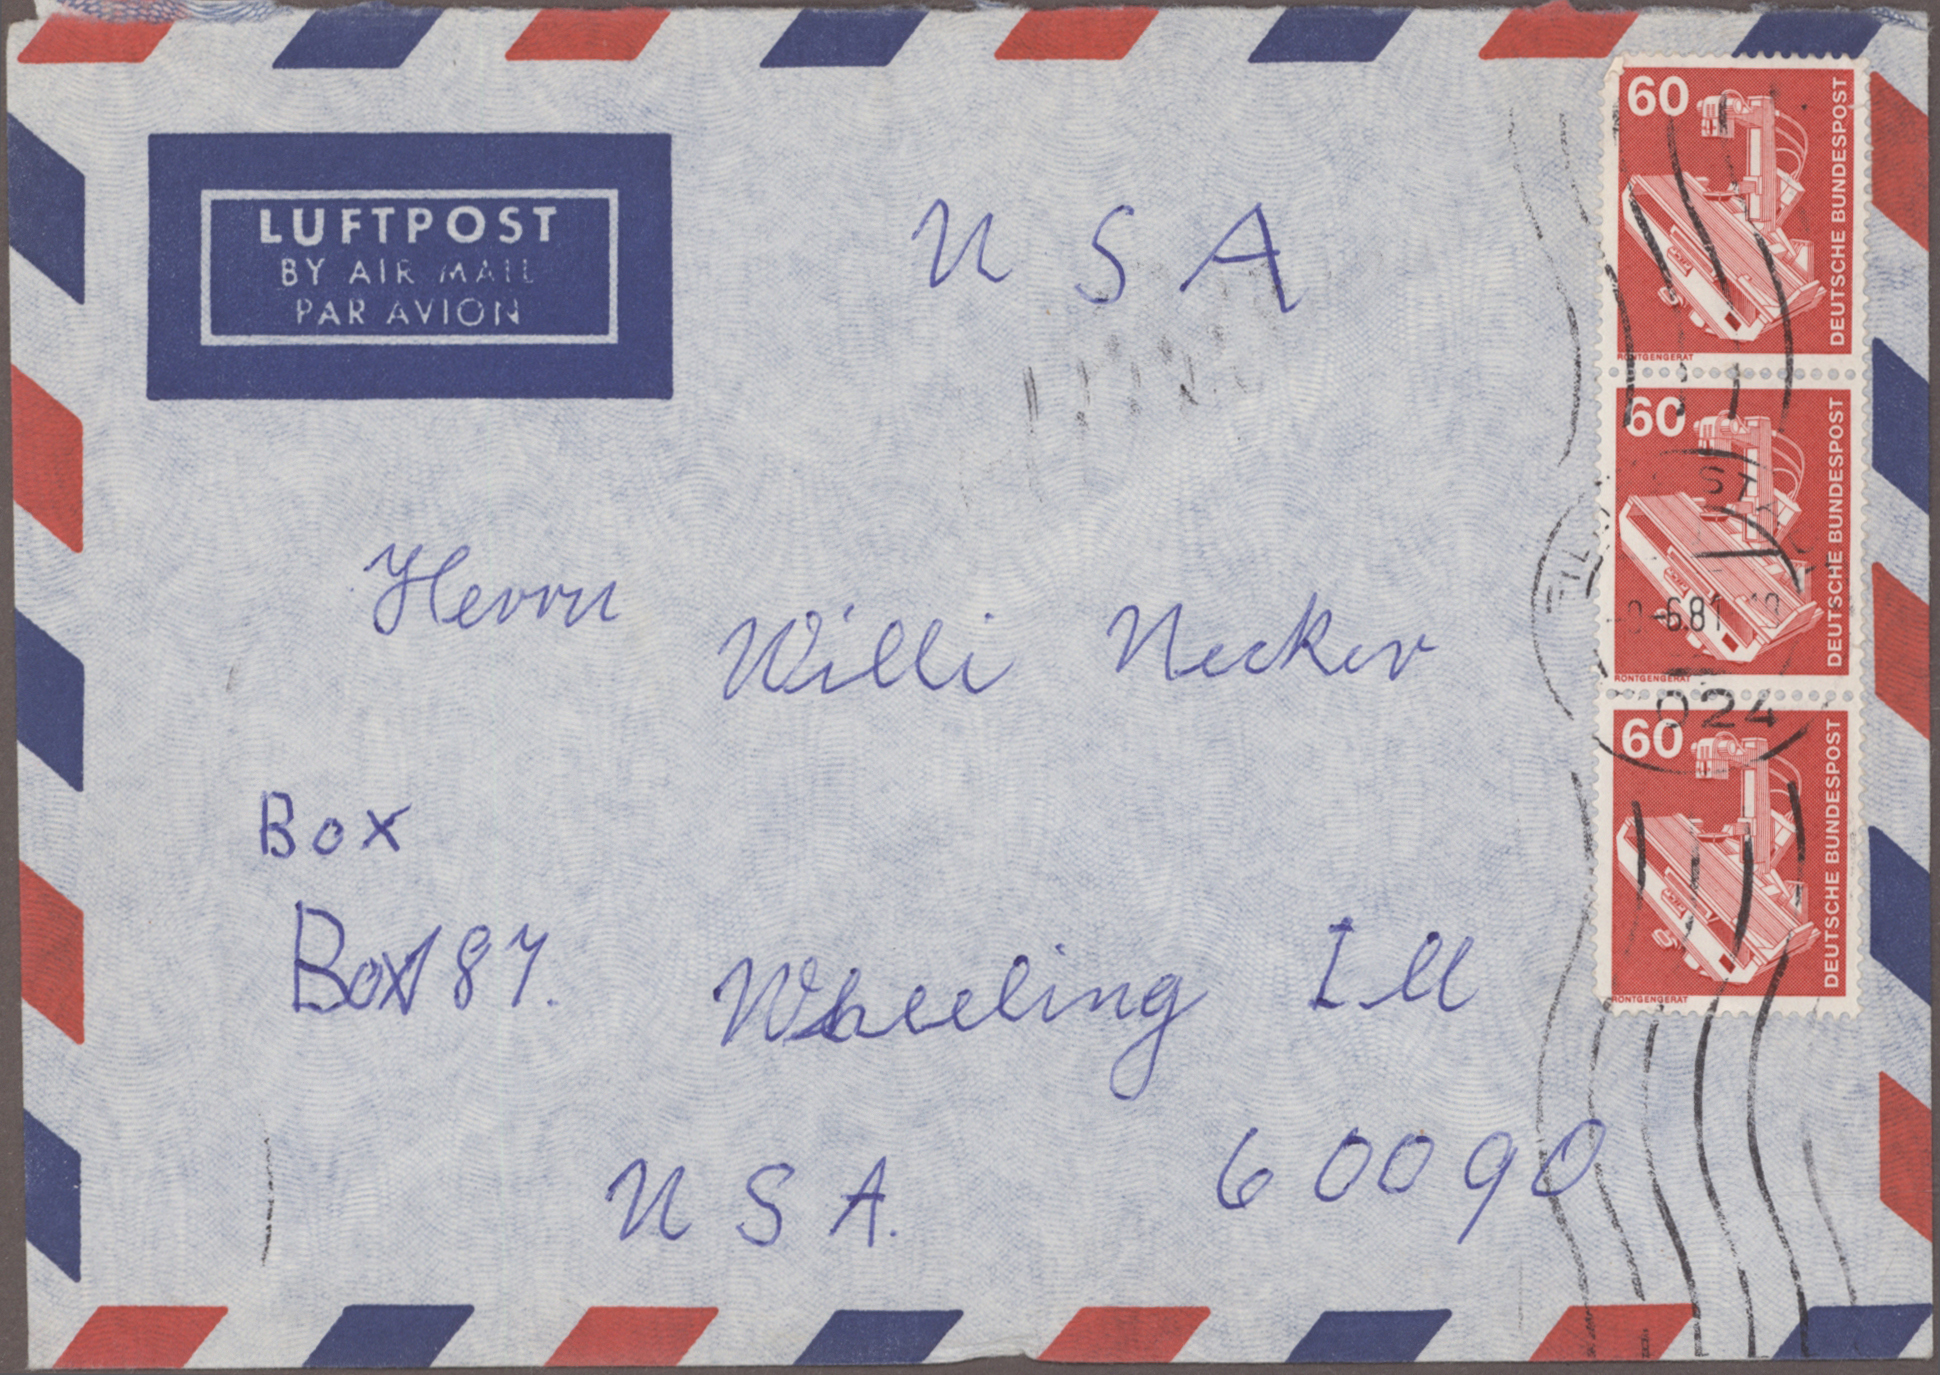 LUFTPOST
BY AIR MAIL
PAR AVION
U S A
60
DEUTSCHE BUNDESPOST
RÖNTGENGERÄT
60
DEUTSCHE BUNDESPOST
RÖNTGENGERÄT
-6.81
024
60
DEUTSCHE BUNDESPOST
RÖNTGENGERÄT
Herrn
Willi Necker
Box
Box 87. Wheeling Ill
U S A. 60090